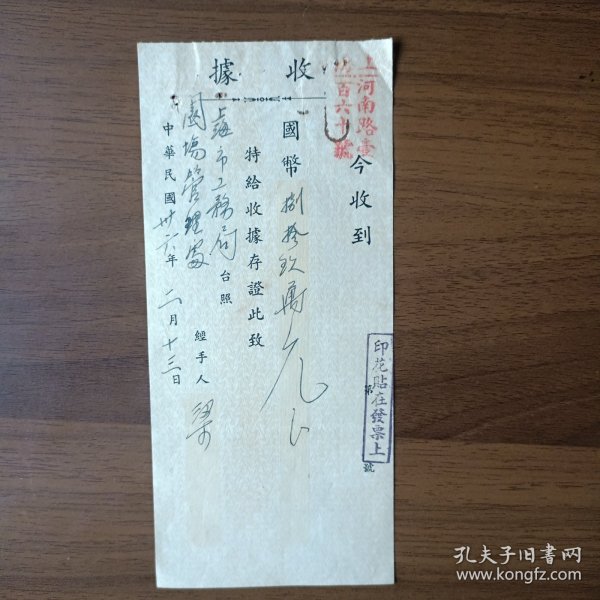 收據
上河南路壹
百六十號
今收到
國幣捌拾玖萬元
特給收據存證此致
上海市工務局台照
園場管理處
中華民國卅六年二月十三日
經手人 梁
印花貼在發票上
第 號
孔夫子旧书网
www.kongfz.com